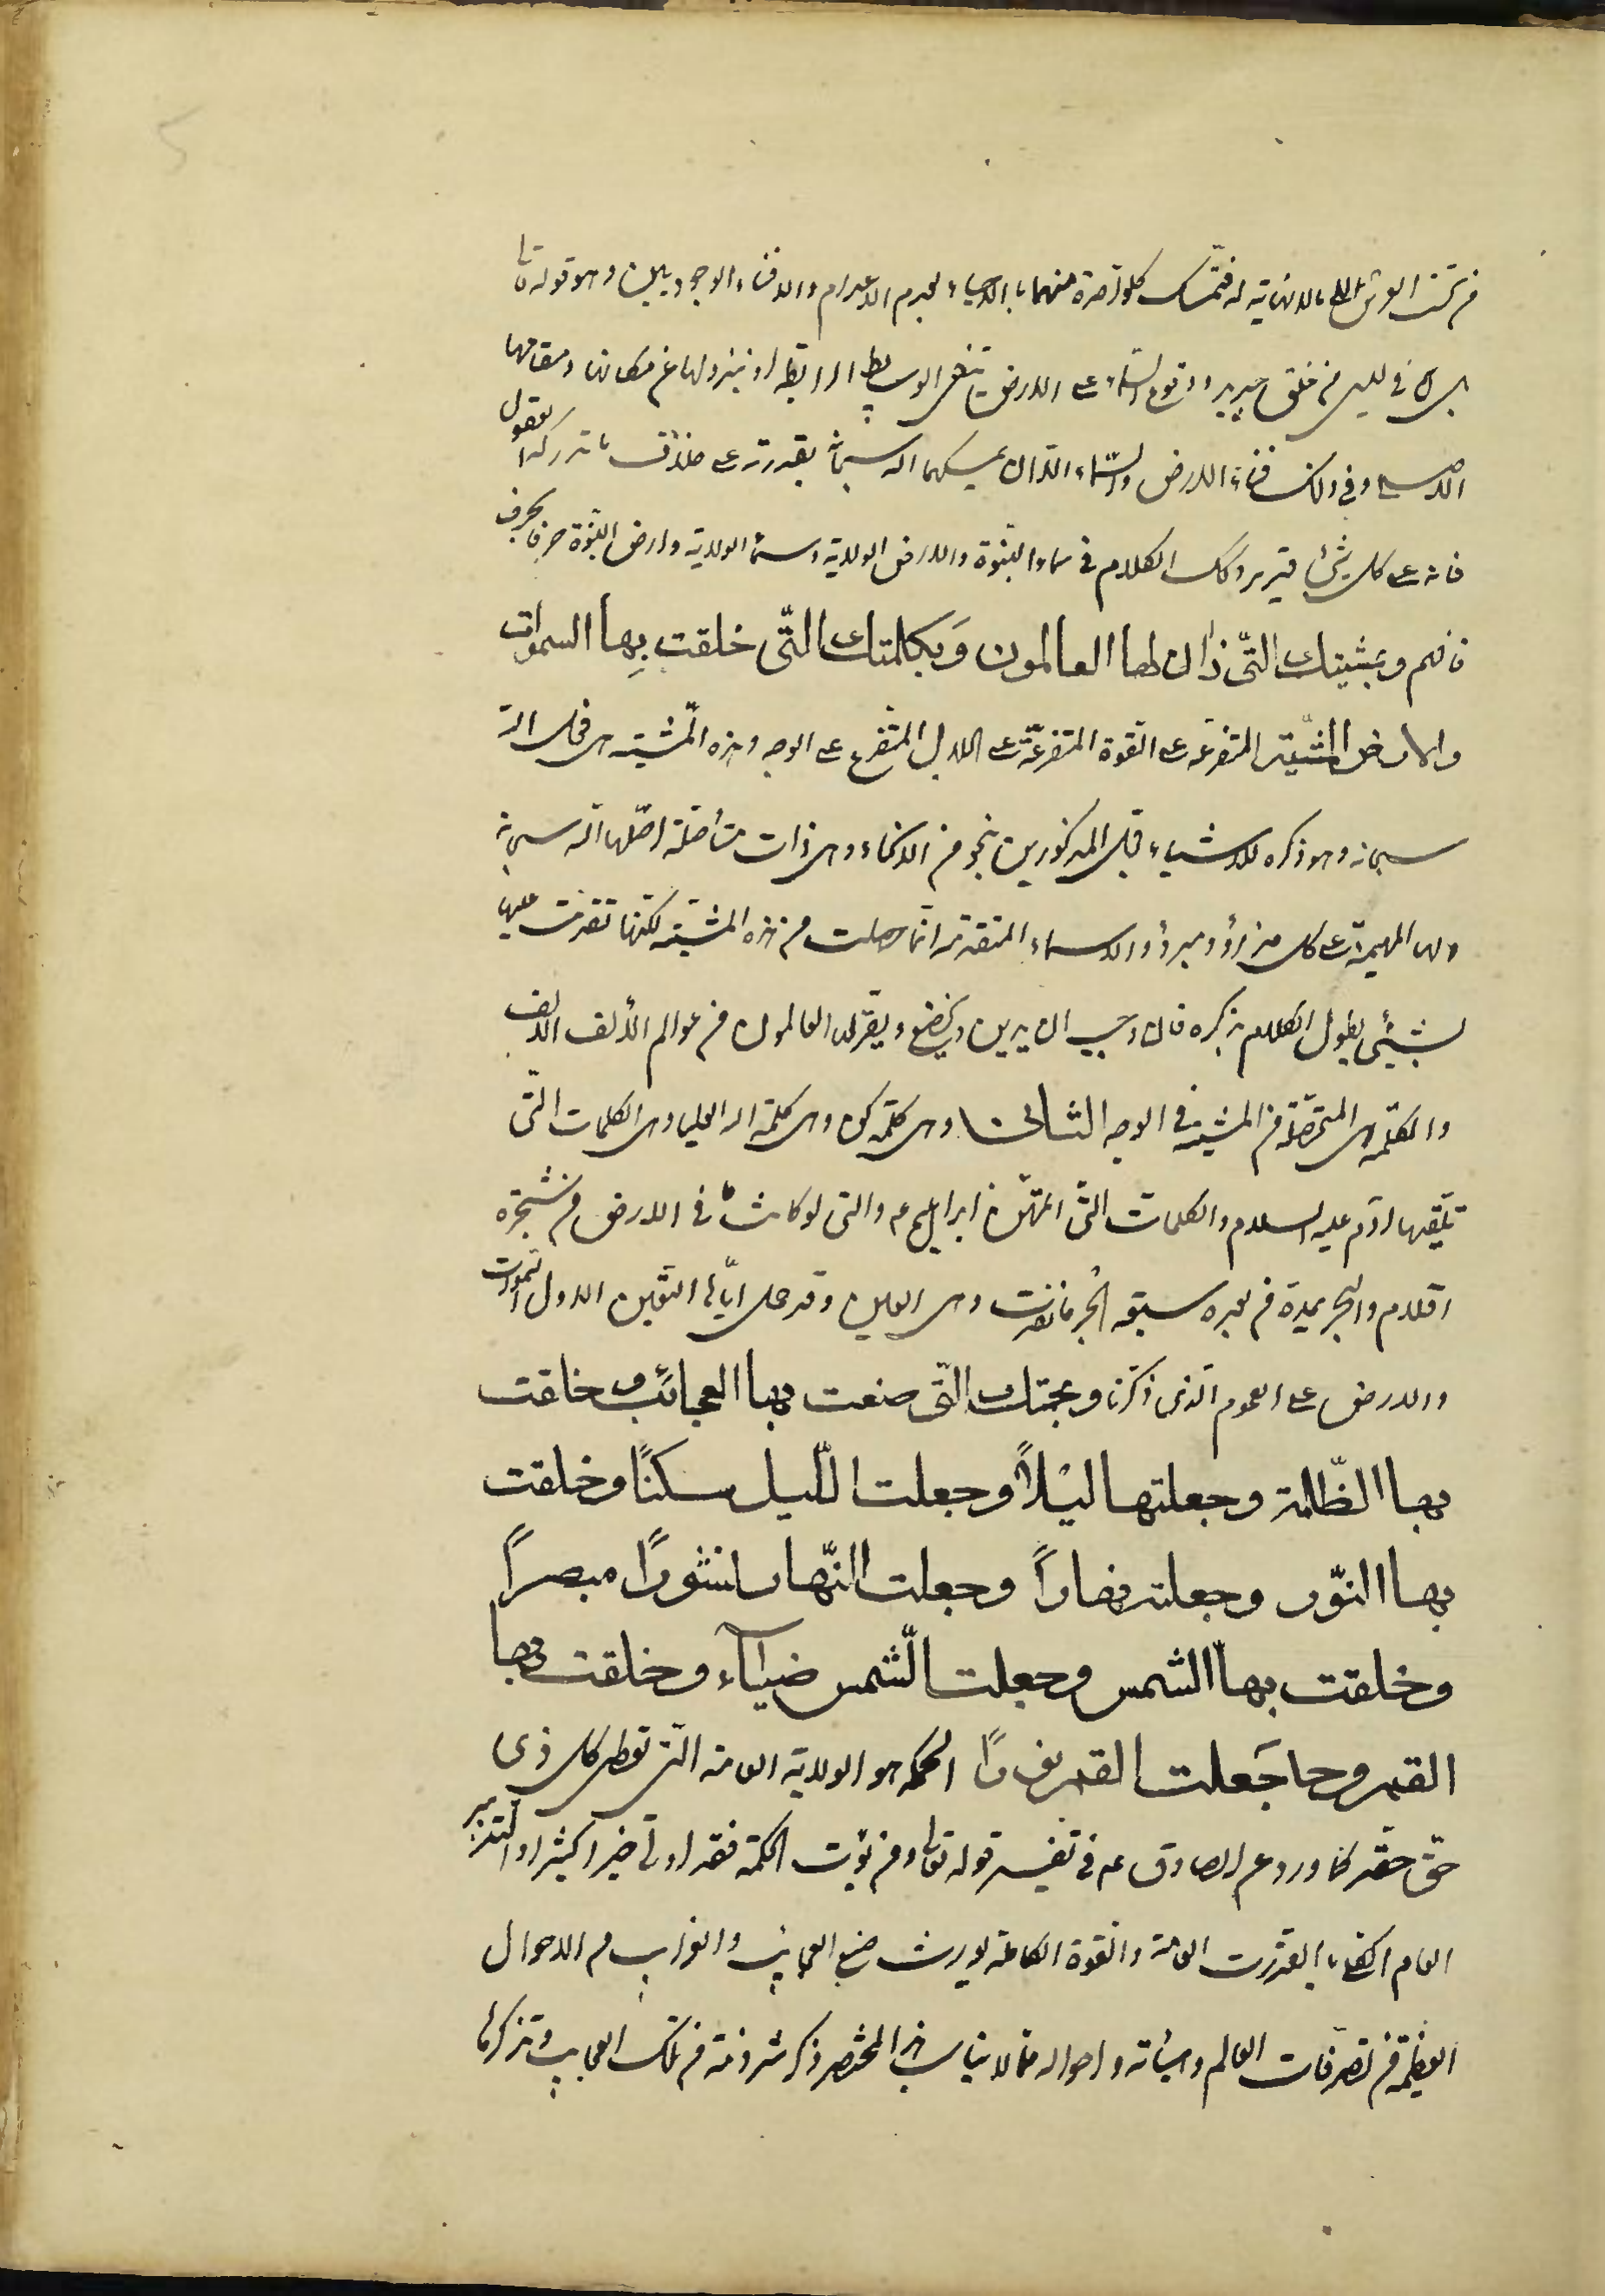 من تحت العرش الى ما لا نهاية له فتمسك كل واحدة منهما بالاشياء لعدم الاعدام والافناء الوجوديين وهو قوله تعا
بل هم في لبس من خلق جديد ووقوع السماء على الارض الوسايط الرابطة او نزولها عن مكانها ومقامها
الاصلي وفي ذلك فناء الارض والسماء اللذان يمسكهما الله سبحانه بقدرته على خلاف ما تدركه العقول
فانه على كل شيء قدير وكذلك الكلام في سماء النبوة والارض الولاية وسماء الولاية وارض النبوة حرفا بحرف
فافهم وبمشيتك التّى دان لها العالمون وَبكلمتك التّى خلقت بِها السموات
والارض المشيّة المتفرعة على القوة المتفرعّة على المتفرع على الوجه وهذه المشية هى فعل الله
سبحانه وهو ذكره للاشياء قبل المذكورين بنحو من الانحاء وهى ذات متأصلة اصّلها الله سبحانه
ولها المهيمنة على كل مذروء ومبروء والاسماء المتقدمة انما حصلت من هذه المشية لكنها تفرعت عليها
لشيئى يطول الكلام بذكره فاذن وجب ان يدين ويخضع ويقرّ لها العالمون من عوالم الألف الالف
والكلمة هى المتحصّلة من المشية في الوجه الثانى وهى كلمة كن وهى كلمة الله العليا وهى الكلمات التّى
تلقيها ادم عليه السلام والكلمات التّى اتمهّن ابراهيم ع والتى لو كانت ما في الارض من شجرة
اقلام والبحر يمده من بعده سبعة ابحر ما نفدت وهى العلين وقد حمل ايّاها الثقلين الاول السموات
والارض على العموم الذى ذكرنا وبحكمتك التّى صنعت بها العجائب وخلقت
بها الظّلمة وجعلتها ليْلاً وجعلت اللّيل سكنًا وخلقت
بها النّور وجعلته نهاراً وجعلت النّهار نشورًا مبصراً
وخلقت بها الشمس وجعلت الشّمس ضيآء وخلقت بها
القمر وجعلت القمر نورًا الحكمة هو الولاية العامة التّى تعطى كل ذى
حق حقه كما ورد عن الصادق ع في تفسير قوله تعا ومن يؤت الحكمة فقد اوتى خيرا كثيرا والتدبير
العام بالقدرت العامة والقوة الكاملة يورث صنع العجايب والغرايب من الاحوال
العظيمة من تصرفات العالم وهيئاته واحواله مما لا يناسب هذا المختصر ذكر شرذمة من تلك العجايب وتذكرها